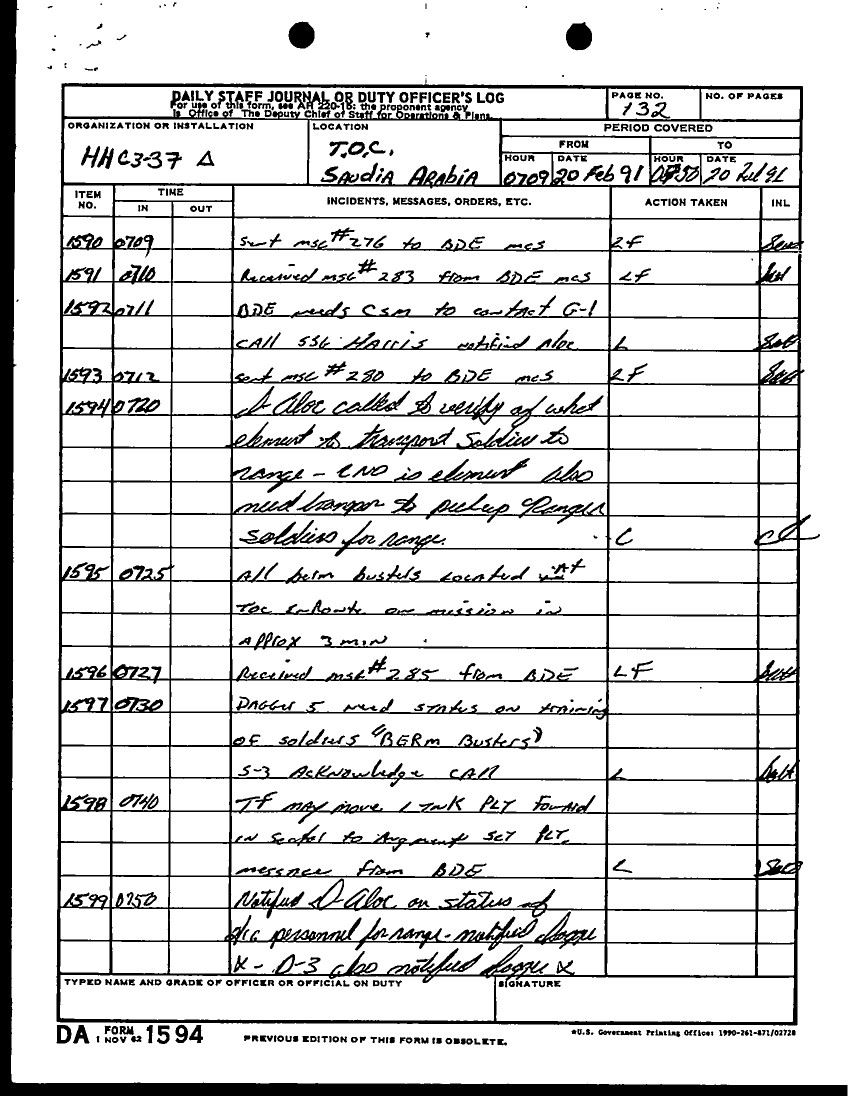 DAILY STAFF JOURNAL OR DUTY OFFICER'S LOG
For use of this form, see AR 220-15; the proponent agency
is Office of The Deputy Chief of Staff for Operations & Plans.
PAGE NO.
132
NO. OF PAGES
ORGANIZATION OR INSTALLATION
HHC 3-37 Δ
LOCATION
T.O.C.
SAUDIA ARABIA
PERIOD COVERED
FROM
TO
HOUR DATE HOUR DATE
0709 20 Feb 91 0750 20 Feb 91
ITEM NO.
TIME
IN OUT
INCIDENTS, MESSAGES, ORDERS, ETC.
ACTION TAKEN
INL
1590 0709 sent msg # 276 to BDE mcs LF
1591 0710 Received msg # 283 from BDE mcs LF
1592 0711 BDE needs CSM to contact G-1
CAll SSG HARRIS notified Aloc L
1593 0712 sent msg # 280 to BDE mcs LF
1594 0720 D Aloc called to verify of what
element to transport Soldiers to
range - LNO is element also
need to pickup Ranger
soldiers for range. C
1595 0725 All berm busters Located At
TOC EnRoute on mission in
APProx 3 min.
1596 0727 Received msg # 285 from BDE LF
1597 0730 DAGGER 5 need status on training
OF soldiers "BERM Busters"
S-3 Acknowledge CAll L
1598 0740 TF may move 1 TNK PLT Forward
in Sector to Augment SCT PLT.
message from BDE L
1599 0750 Notified D Aloc on status of
personnel for range - notified
X - D-3 also notified X
TYPED NAME AND GRADE OF OFFICER OR OFFICIAL ON DUTY
SIGNATURE
DA FORM 1594
1 NOV 62
PREVIOUS EDITION OF THIS FORM IS OBSOLETE.
*U.S. Government Printing Office: 1990-261-871/02728